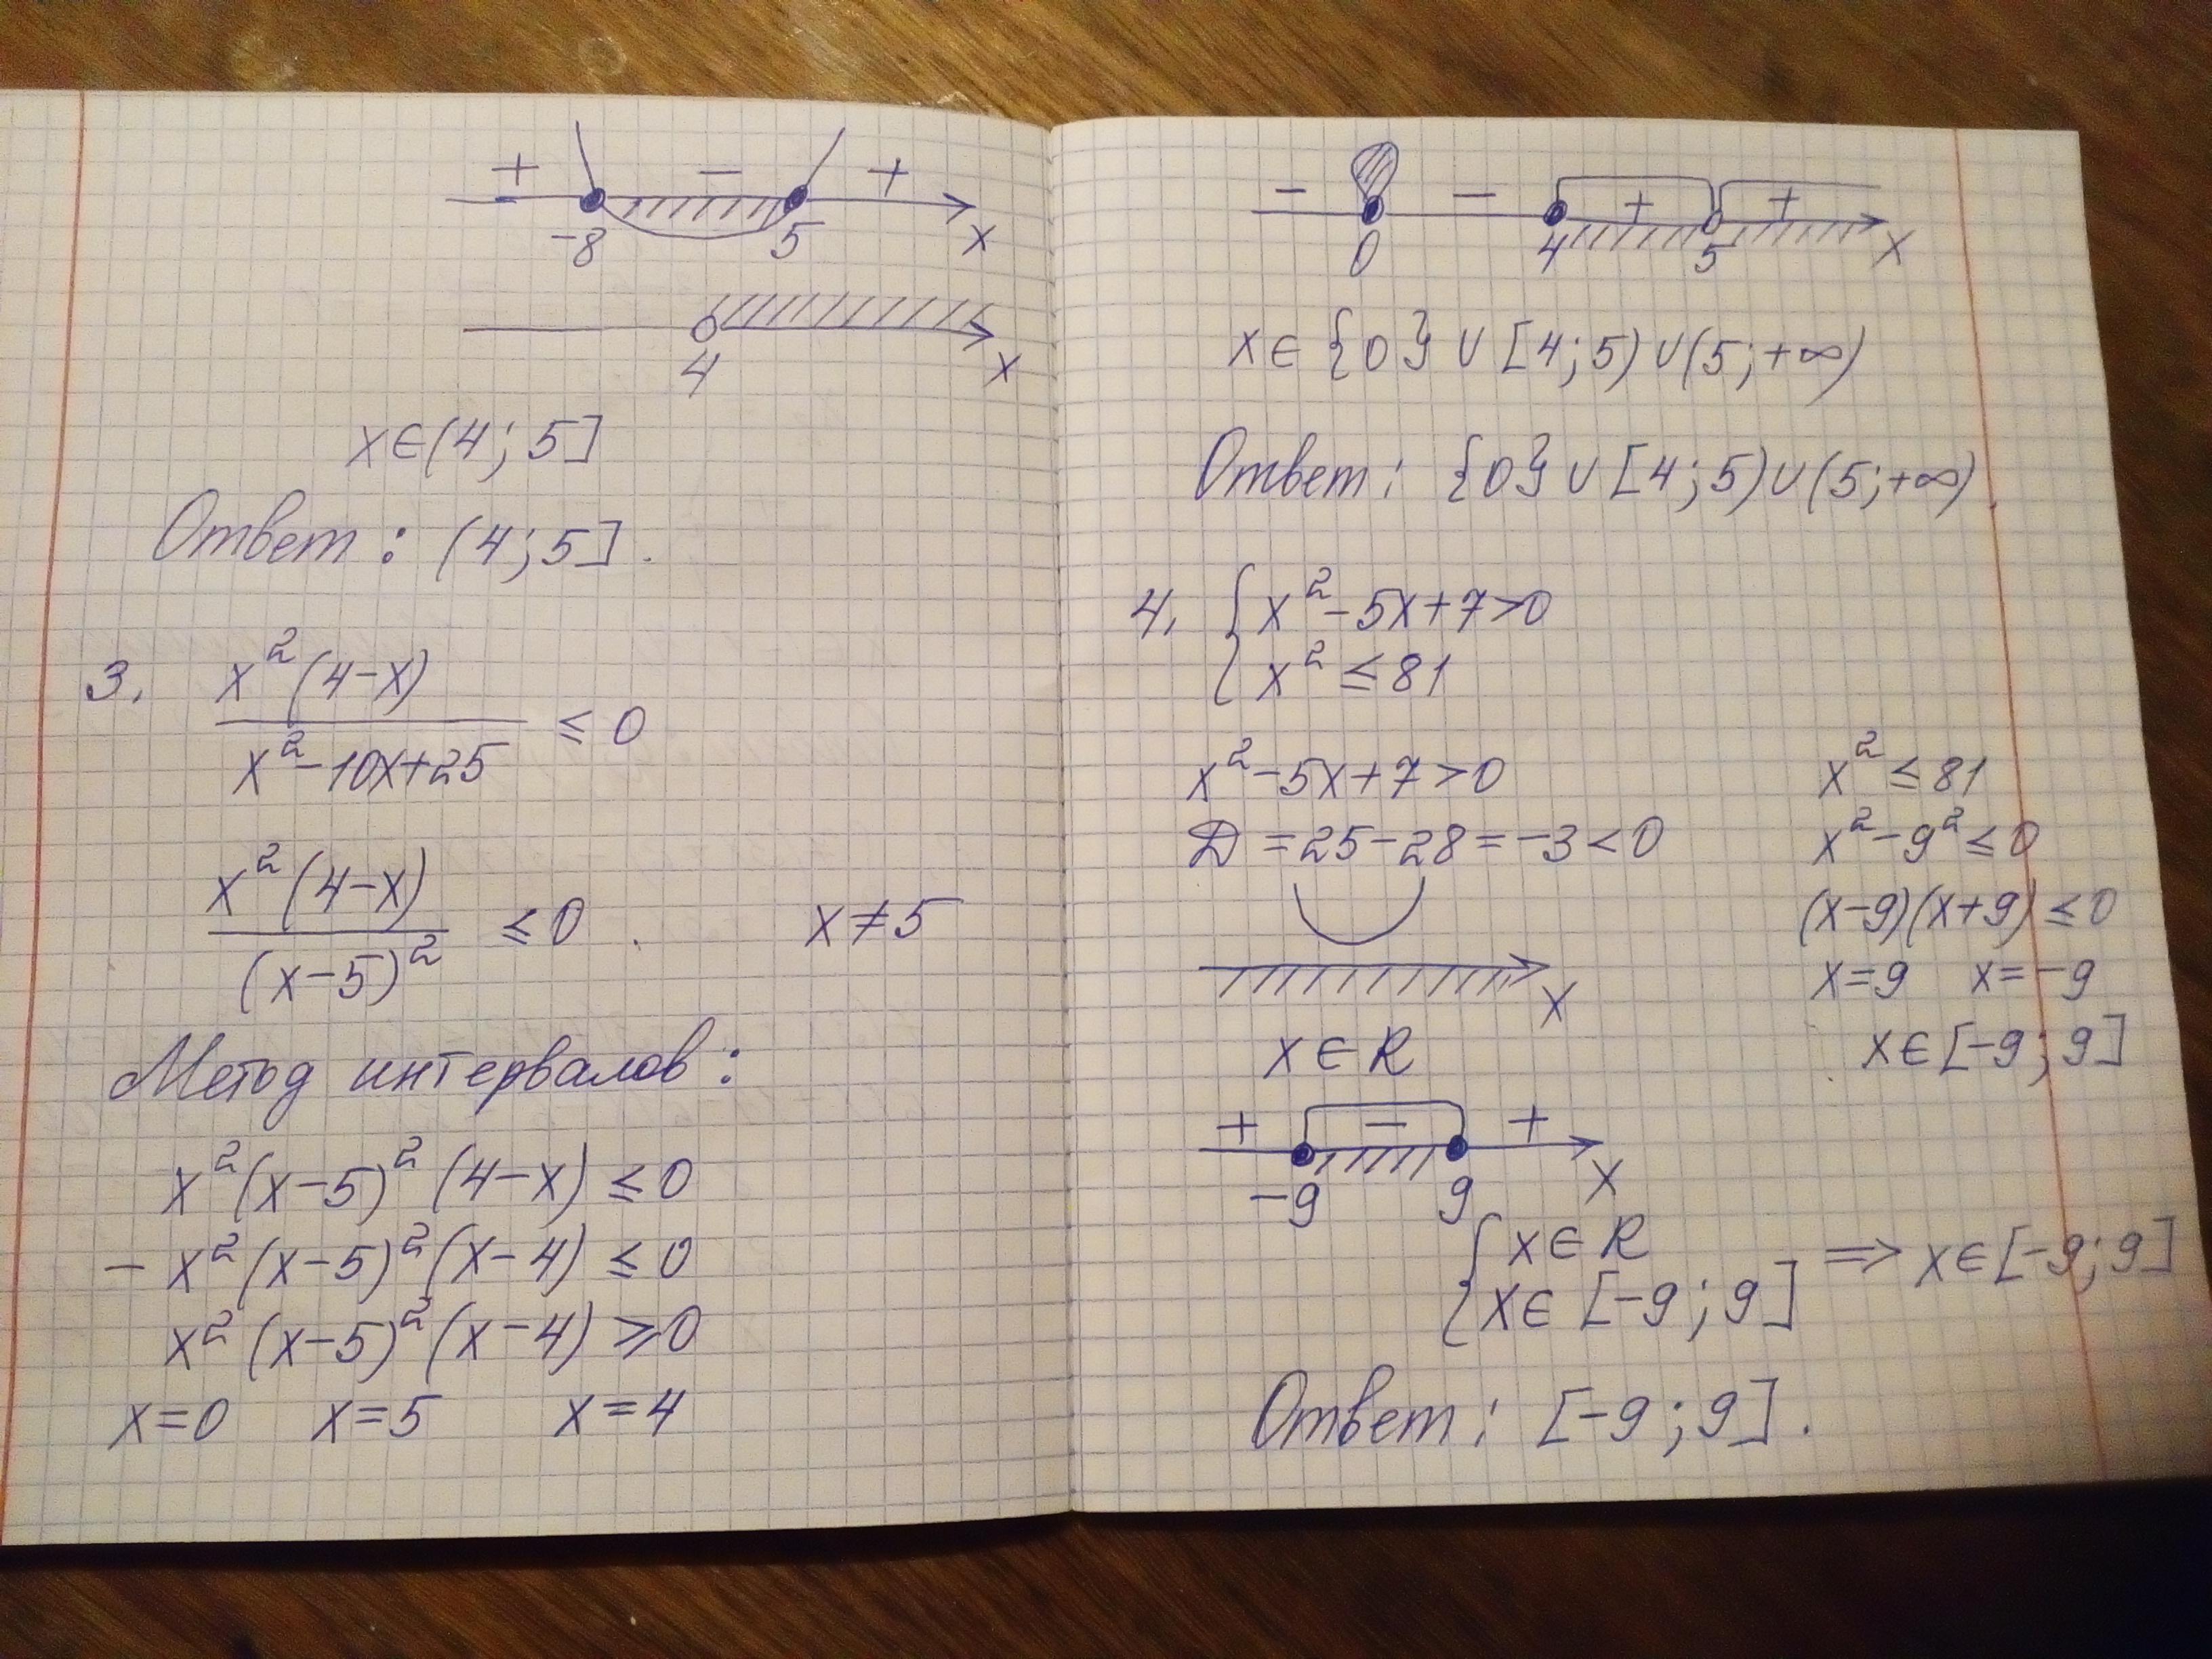 + − +
-8 5 x
4 x
x∈(4;5]
Ответ: (4;5].
3. x²(4-x)
x²-10x+25 ≤ 0
x²(4-x)
(x-5)² ≤ 0. x≠5
Метод интервалов:
x²(x-5)²(4-x) ≤ 0
-x²(x-5)²(x-4) ≤ 0
x²(x-5)²(x-4) ≥ 0
x=0 x=5 x=4
− − + +
0 4 5 x
x∈{0}∪[4;5)∪(5;+∞)
Ответ: {0}∪[4;5)∪(5;+∞).
4. { x²-5x+7>0
x² ≤ 81
x²-5x+7>0
D = 25-28 = -3<0
x
x∈R
x² ≤ 81
x²-9² ≤ 0
(x-9)(x+9) ≤ 0
x=9 x=-9
x∈[-9;9]
+ − +
-9 9 x
{ x∈R
x∈[-9;9] ⇒ x∈[-9;9]
Ответ: [-9;9].